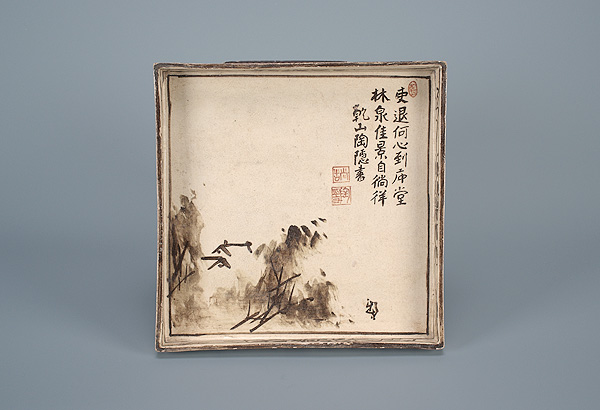 吏退何心到堂
林泉佳景自徜徉
乾山陶隠書